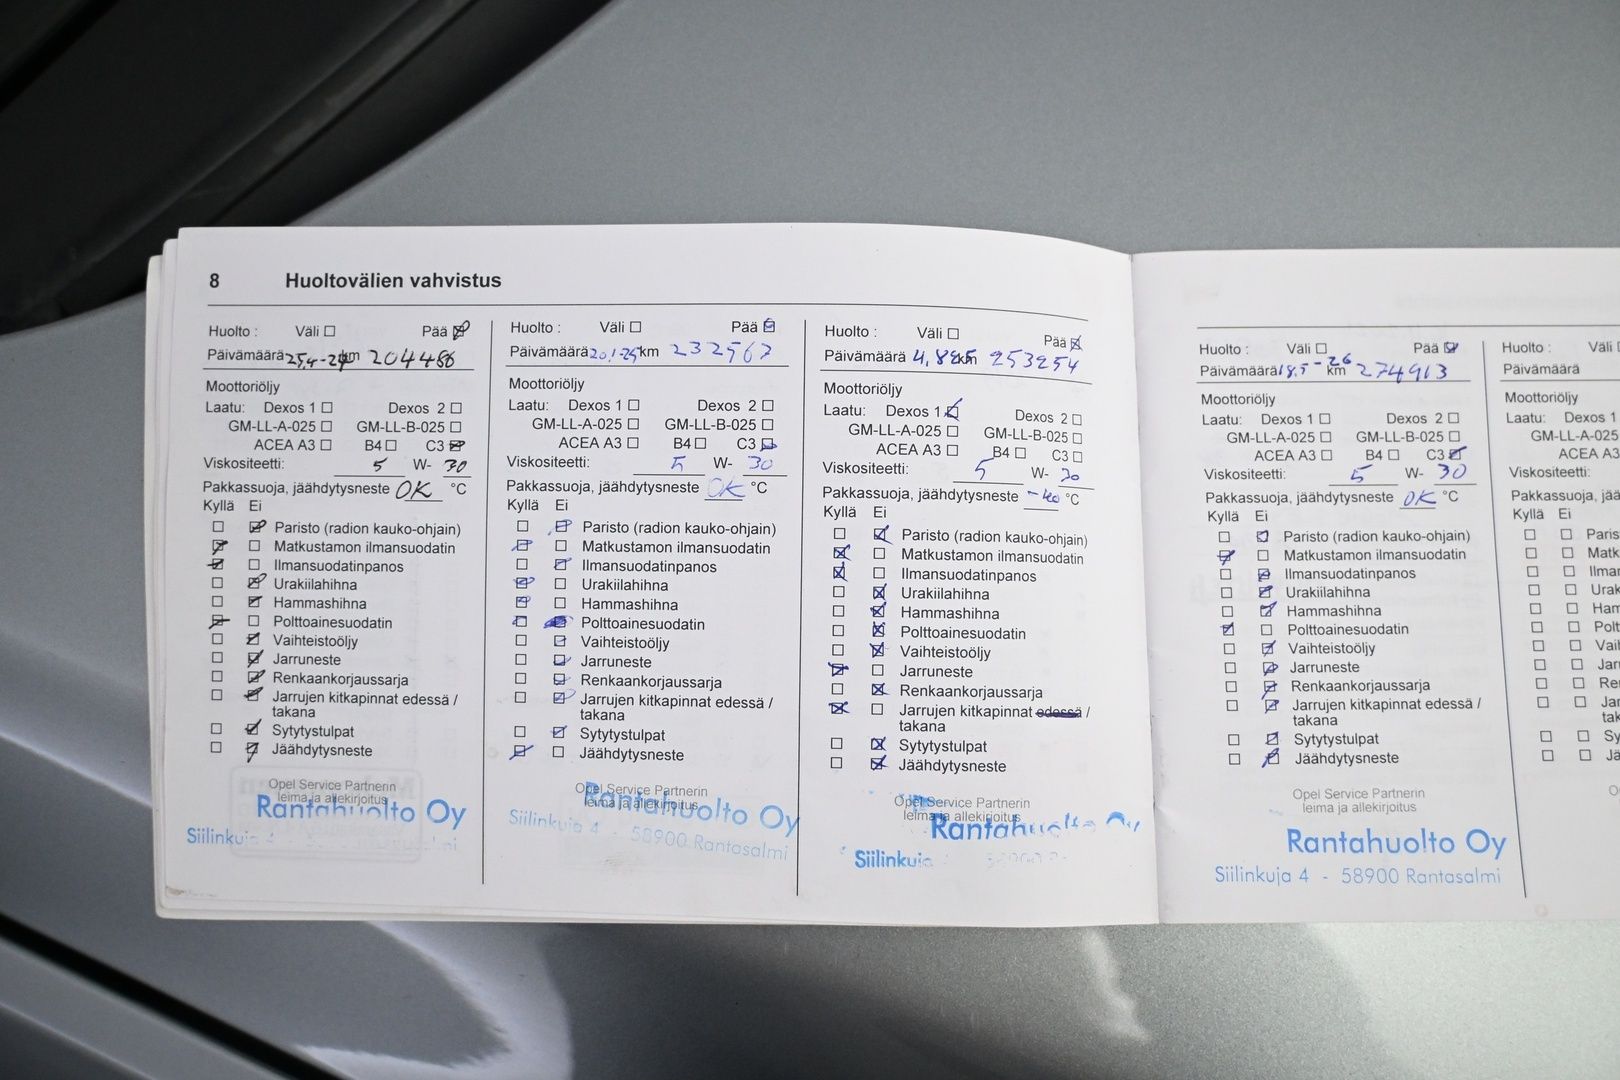 8 Huoltovälien vahvistus
Huolto : Väli ☐ Pää ☒
Päivämäärä 25,4-24 km 204486
Moottoriöljy
Laatu: Dexos 1 ☐ Dexos 2 ☐
GM-LL-A-025 ☐ GM-LL-B-025 ☐
ACEA A3 ☐ B4 ☐ C3 ☒
Viskositeetti: 5 W- 30
Pakkassuoja, jäähdytysneste OK °C
Kyllä Ei
☐ ☒ Paristo (radion kauko-ohjain)
☒ ☐ Matkustamon ilmansuodatin
☒ ☐ Ilmansuodatinpanos
☐ ☒ Urakiilahihna
☐ ☒ Hammashihna
☒ ☐ Polttoainesuodatin
☐ ☒ Vaihteistoöljy
☐ ☒ Jarruneste
☐ ☒ Renkaankorjaussarja
☐ ☒ Jarrujen kitkapinnat edessä /
takana
☐ ☒ Sytytystulpat
☐ ☒ Jäähdytysneste
Opel Service Partnerin
leima ja allekirjoitus
Rantahuolto Oy
Siilinkuja 4
Huolto : Väli ☐ Pää ☒
Päivämäärä 20.1-25 km 232567
Moottoriöljy
Laatu: Dexos 1 ☐ Dexos 2 ☐
GM-LL-A-025 ☐ GM-LL-B-025 ☐
ACEA A3 ☐ B4 ☐ C3 ☒
Viskositeetti: 5 W- 30
Pakkassuoja, jäähdytysneste OK °C
Kyllä Ei
☐ ☒ Paristo (radion kauko-ohjain)
☒ ☐ Matkustamon ilmansuodatin
☐ ☒ Ilmansuodatinpanos
☒ ☐ Urakiilahihna
☒ ☐ Hammashihna
☒ ☒ Polttoainesuodatin
☐ ☒ Vaihteistoöljy
☐ ☒ Jarruneste
☐ ☒ Renkaankorjaussarja
☐ ☒ Jarrujen kitkapinnat edessä /
takana
☐ ☒ Sytytystulpat
☒ ☐ Jäähdytysneste
Opel Service Partnerin
leima ja allekirjoitus
Rantahuolto Oy
Siilinkuja 4 - 58900 Rantasalmi
Huolto : Väli ☐ Pää ☒
Päivämäärä km 253254
Moottoriöljy
Laatu: Dexos 1 ☒ Dexos 2 ☐
GM-LL-A-025 ☐ GM-LL-B-025 ☐
ACEA A3 ☐ B4 ☐ C3 ☐
Viskositeetti: 5 W- 30
Pakkassuoja, jäähdytysneste -40 °C
Kyllä Ei
☐ ☒ Paristo (radion kauko-ohjain)
☒ ☐ Matkustamon ilmansuodatin
☒ ☐ Ilmansuodatinpanos
☐ ☒ Urakiilahihna
☐ ☒ Hammashihna
☐ ☒ Polttoainesuodatin
☐ ☒ Vaihteistoöljy
☒ ☐ Jarruneste
☐ ☒ Renkaankorjaussarja
☒ ☐ Jarrujen kitkapinnat edessä /
takana
☐ ☒ Sytytystulpat
☐ ☒ Jäähdytysneste
Opel Service Partnerin
leima ja allekirjoitus
Rantahuolto Oy
Siilinkuja
Huolto : Väli ☐ Pää ☒
Päivämäärä 18.5-26 km 274913
Moottoriöljy
Laatu: Dexos 1 ☐ Dexos 2 ☐
GM-LL-A-025 ☐ GM-LL-B-025 ☐
ACEA A3 ☐ B4 ☐ C3 ☒
Viskositeetti: 5 W- 30
Pakkassuoja, jäähdytysneste OK °C
Kyllä Ei
☐ ☒ Paristo (radion kauko-ohjain)
☒ ☐ Matkustamon ilmansuodatin
☐ ☒ Ilmansuodatinpanos
☐ ☒ Urakiilahihna
☐ ☒ Hammashihna
☒ ☐ Polttoainesuodatin
☐ ☒ Vaihteistoöljy
☐ ☒ Jarruneste
☐ ☒ Renkaankorjaussarja
☐ ☒ Jarrujen kitkapinnat edessä /
takana
☐ ☒ Sytytystulpat
☐ ☒ Jäähdytysneste
Opel Service Partnerin
leima ja allekirjoitus
Rantahuolto Oy
Siilinkuja 4 - 58900 Rantasalmi
Huolto : Väli
Päivämäärä
Moottoriöljy
Laatu: Dexos 1
GM-LL-A-025
ACEA A3
Viskositeetti:
Pakkassuoja, jää
Kyllä Ei
☐ ☐ Paris
☐ ☐ Matk
☐ ☐ Ilma
☐ ☐ Urak
☐ ☐ Ham
☐ ☐ Polt
☐ ☐ Vai
☐ ☐ Jar
☐ ☐ Re
☐ ☐ Jar
tak
☐ ☐ Sy
☐ ☐ Jä